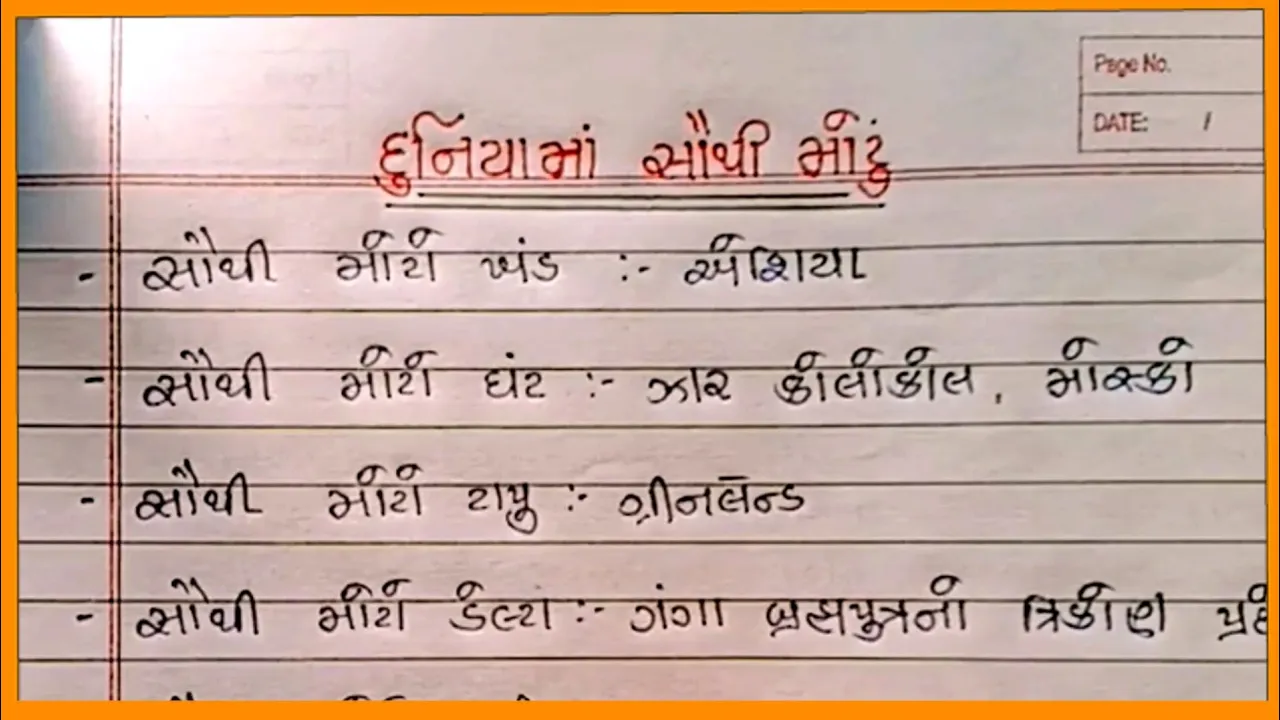 Page No.
DATE: /
દુનિયામાં સૌથી મોટું
- સૌથી મોટો ખંડ :- એશિયા
- સૌથી મોટો ઘંટ :- ઝાર કોલોકોલ, મોસ્કો
- સૌથી મોટો ટાપુ :- ગ્રીનલેન્ડ
- સૌથી મોટો ડેલ્ટા :- ગંગા બ્રહ્મપુત્રનો ત્રિકોણ